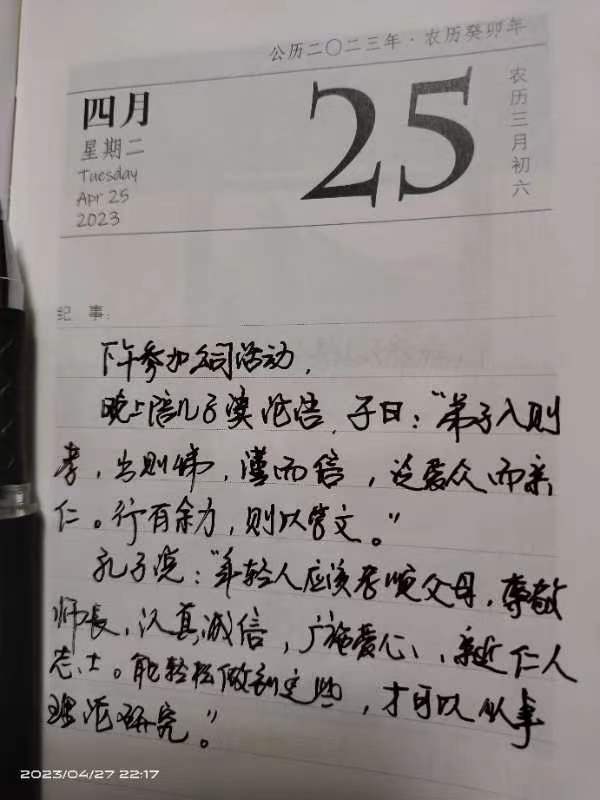 公历二〇二三年·农历癸卯年
四月
星期二
Tuesday
Apr 25
2023
25
农历三月初六
纪 事:
下午参加公司活动,
晚上陪儿子读论语,子曰:“弟子入则
孝,出则悌,谨而信,泛爱众而亲
仁。行有余力,则以学文。”
孔子说:“年轻人应该孝顺父母,尊敬
师长,认真诚信,广施爱心,亲近仁人
志士。能轻松做到这些,才可以从事
理论研究。”
2023/04/27 22:17